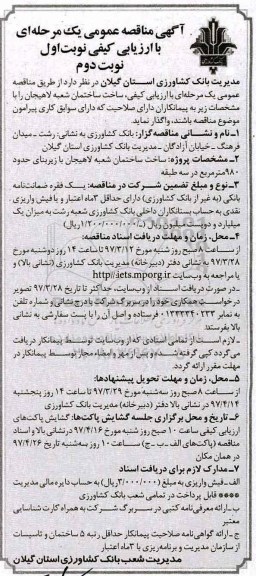 آگهی مناقصه عمومی یک مرحله‌ای
با ارزیابی کیفی نوبت اول
نوبت دوم
مدیریت بانک کشاورزی استان گیلان در نظر دارد از طریق مناقصه
عمومی یک مرحله‌ای با ارزیابی کیفی، ساخت ساختمان شعبه لاهیجان را با
مشخصات زیر به پیمانکاران دارای صلاحیت که دارای سوابق کاری پیرامون
موضوع مناقصه باشند، واگذار نماید.
۱ــ نام و نشانی مناقصه‌گزار: بانک کشاورزی به نشانی: رشت ـ میدان
فرهنگ ـ خیابان آزادگان ـ مدیریت بانک کشاورزی استان گیلان
۲ــ مشخصات پروژه: ساخت ساختمان شعبه لاهیجان با زیربنای حدود
۹۸۰مترمربع در سه طبقه
۳ــ نوع و مبلغ تضمین شرکت در مناقصه: یک فقره ضمانت‌نامه
بانکی (به غیر از بانک کشاورزی) دارای حداقل ۳ماه اعتبار و یا فیش واریزی
نقدی به حساب بستانکاران داخلی بانک کشاورزی شعبه رشت به میزان یک
میلیارد و دویست میلیون ریال (۱/۲۰۰/۰۰۰/۰۰۰ریال)
۴ــ محل، زمان و مهلت دریافت اسناد مناقصه:
از ساعت ۸ صبح روز شنبه مورخ ۹۷/۳/۱۲ تا ساعت ۱۴ روز دوشنبه مورخ
۹۷/۳/۲۸ به نشانی دفتر (دبیرخانه) مدیریت بانک کشاورزی (نشانی بالا) و
یا مراجعه به وب‌سایت http://iets.mporg.ir
ـ در صورت دریافت اسناد از وب‌سایت، حداکثر تا تاریخ ۹۷/۳/۲۸ تصویر
درخواست همکاری خود را در سربرگ شرکت با درج نشانی و شماره تلفن
به نمابر ۰۱۳۳۳۳۴۰۲۳۳ فرستاده و اصل آن را با پست سفارشی به نشانی
بالا بفرستند.
ـ لازم است از تمامی اسنادی که از وب‌سایت توسط پیمانکار دریافت
می‌گردد کپی گرفته شده و پس از مهر و امضاء مجاز توسط پیمانکار در
مهلت مقرر ارائه گردد.
۵ــ محل، زمان و مهلت تحویل پیشنهادها:
از ساعت ۸ صبح روز سه‌شنبه مورخ ۹۷/۳/۲۹ تا ساعت ۱۴ روز پنجشنبه
۹۷/۴/۱۴ در نشانی بالا دفتر (دبیرخانه) مدیریت بانک کشاورزی
۶ــ تاریخ و محل برگزاری جلسه گشایش پاکت‌ها: گشایش پاکت‌های
ارزیابی کیفی ساعت ۱۰ صبح روز شنبه مورخ ۹۷/۴/۱۶ در نشانی بالا و اسناد
مناقصه (پاکت‌های الف ـ ب ـ ج) ساعت ۱۰ روز سه‌شنبه تاریخ ۹۷/۴/۲۶
در همان مکان
۷ــ مدارک لازم برای دریافت اسناد
الف ـ فیش واریزی به مبلغ (۳/۰۰۰/۰۰۰ریال) به حساب دایره مالی مدیریت
قابل پرداخت در تمامی شعب بانک کشاورزی
ب ـ ارائه معرفی‌نامه کتبی در سربرگ شرکت به همراه کارت شناسایی
معتبر
ج ـ ارائه گواهی‌نامه صلاحیت پیمانکار حداقل رتبه ۵ ساختمان و تاسیسات
از سازمان مدیریت و برنامه‌ریزی با ۳ماه اعتبار
مدیریت شعب بانک کشاورزی استان گیلان